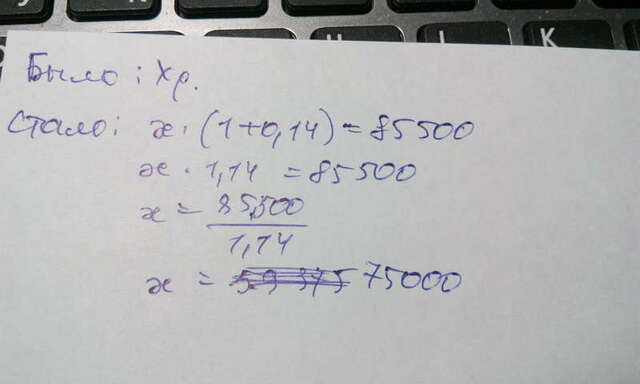 Было: х р.
Стало: х · (1+0,14) = 85500
х · 1,14 = 85500
х = 85500
1,14
х = 75000